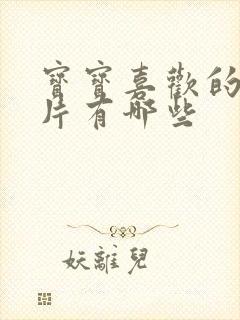 寶寶喜歡的
片有哪些
妖離兒